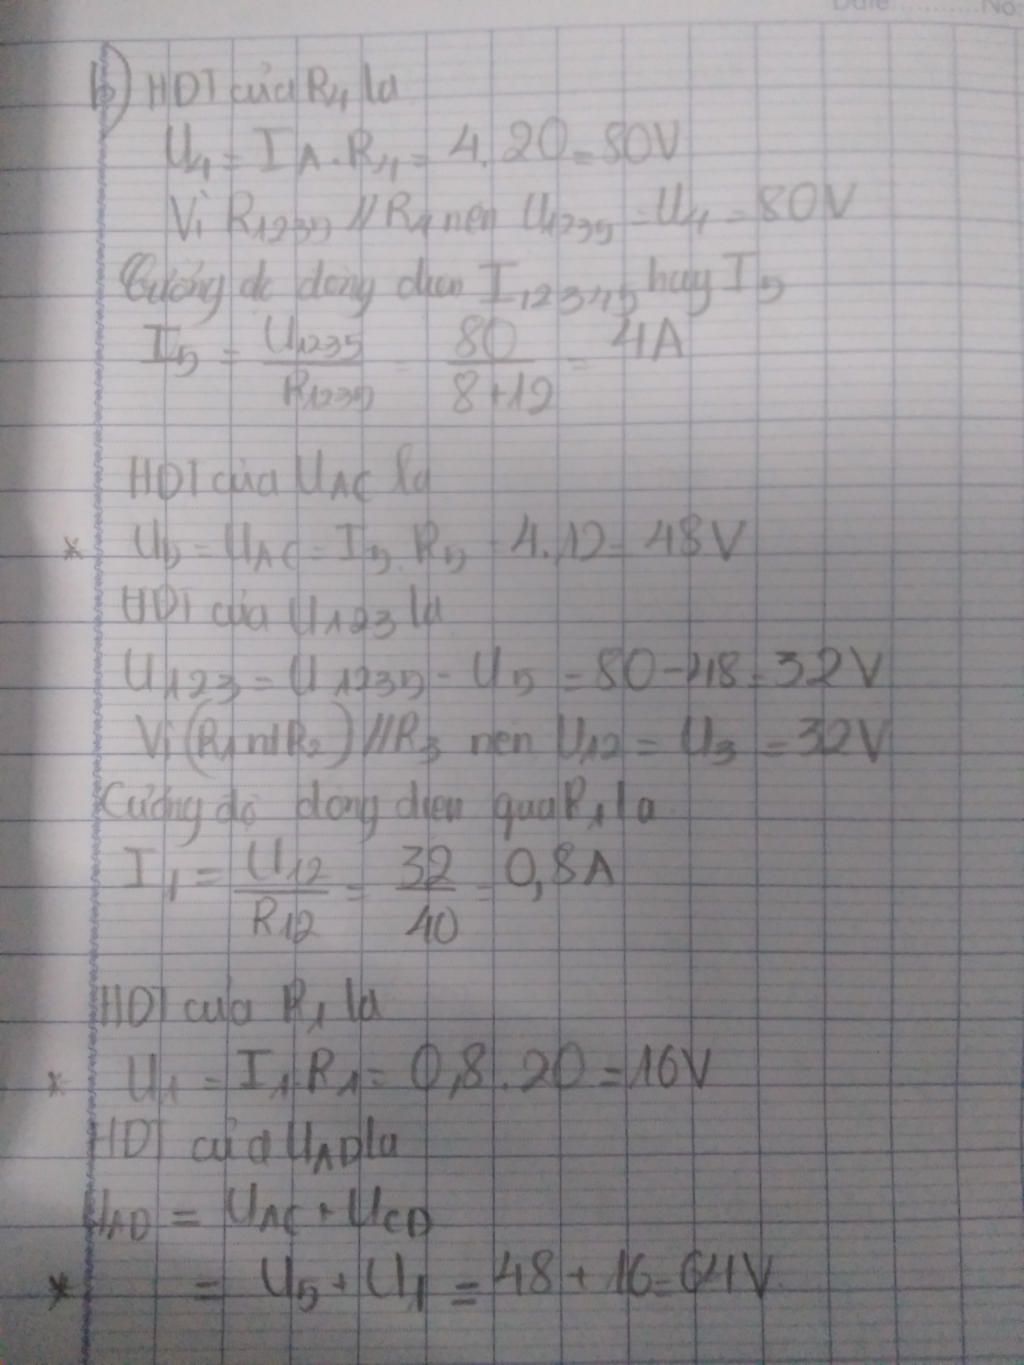 Date ............ No
b) HDT của R4 la
U4 = IA . R4 = 4 . 20 = 80V
Vì R1235 // R4 nên U1235 = U4 = 80V
Cường độ dòng điện I12345 hay I5
I5 = U1235 / R1235 = 80 / 8+12 = 4A
HDT của UAC la
* U5 = UAC = I5 . R5 = 4.12 = 48V
HDT của U123 la
U123 = U1235 - U5 = 80 - 48 = 32V
Vì (R1 nt R2) // R3 nên U12 = U3 = 32V
Cường độ dòng điện qua R1 la
I1 = U12 / R12 = 32 / 40 = 0,8A
HDT của R1 la
* U1 = I1 . R1 = 0,8 . 20 = 16V
HDT của UAD la
UAD = UAC + UCD
* = U5 + U1 = 48 + 16 = 64V